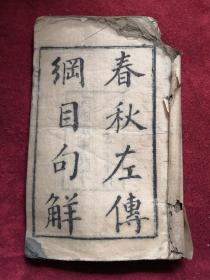 春秋左傳
綱目句解